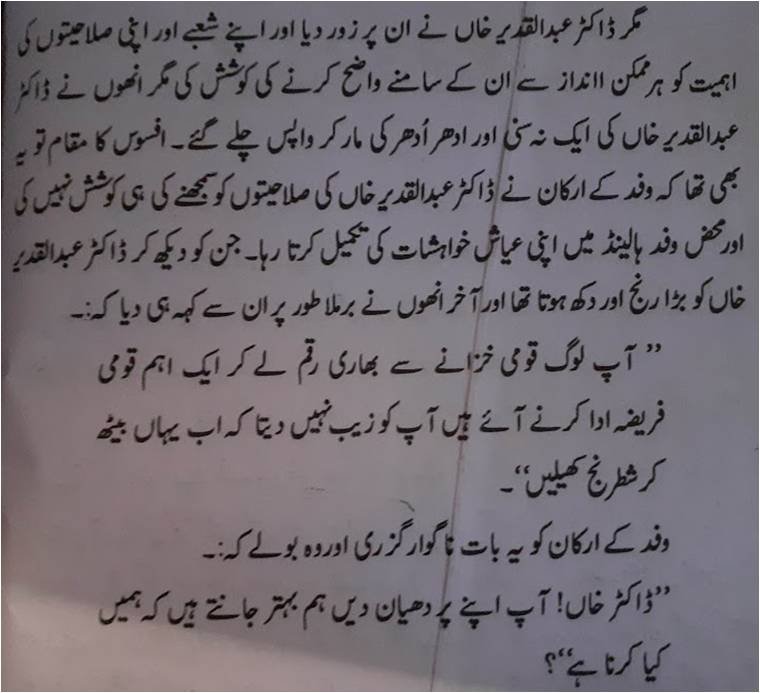 مگر ڈاکٹر عبدالقدیر خاں نے ان پر زور دیا اور اپنے شعبے اور اپنی صلاحیتوں کی
اہمیت کو ہر ممکن اانداز سے ان کے سامنے واضح کرنے کی کوشش کی مگر انھوں نے ڈاکٹر
عبدالقدیر خاں کی ایک نہ سنی اور ادھر اُدھر کی مار کر واپس چلے گئے۔ افسوس کا مقام تو یہ
بھی تھا کہ وفد کے ارکان نے ڈاکٹر عبدالقدیر خاں کی صلاحیتوں کو سمجھنے کی ہی کوشش نہیں کی
اور محض وفد ہالینڈ میں اپنی عیاش خواہشات کی تکمیل کرتا رہا۔ جن کو دیکھ کر ڈاکٹر عبدالقدیر
خاں کو بڑا رنج اور دکھ ہوتا تھا اور آخر انھوں نے برملا طور پر ان سے کہہ ہی دیا کہ:۔
’’ آپ لوگ قومی خزانے سے بھاری رقم لے کر ایک اہم قومی
فریضہ ادا کرنے آئے ہیں آپ کو زیب نہیں دیتا کہ اب یہاں بیٹھ
کر شطرنج کھیلیں‘‘۔
وفد کے ارکان کو یہ بات نا گوار گزری اور وہ بولے کہ:۔
’’ڈاکٹر خاں! آپ اپنے پر دھیان دیں ہم بہتر جانتے ہیں کہ ہمیں
کیا کرنا ہے‘‘؟